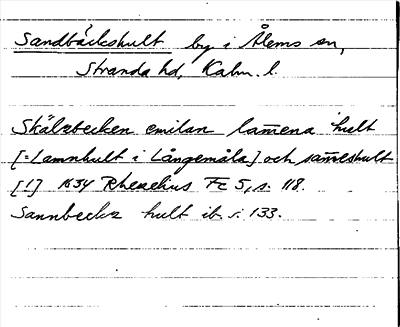 Sandbäckshult by i Ålems sn,
Stranda hd, Kalm. l.
Skälzbecken emilan lam̄ena hult
[=Lamnhult i Långemåla] och sam̄eshult
[!] 1634 Rhezelius Fc 5, s. 118.
Sannbeckz hult ib. s. 133.